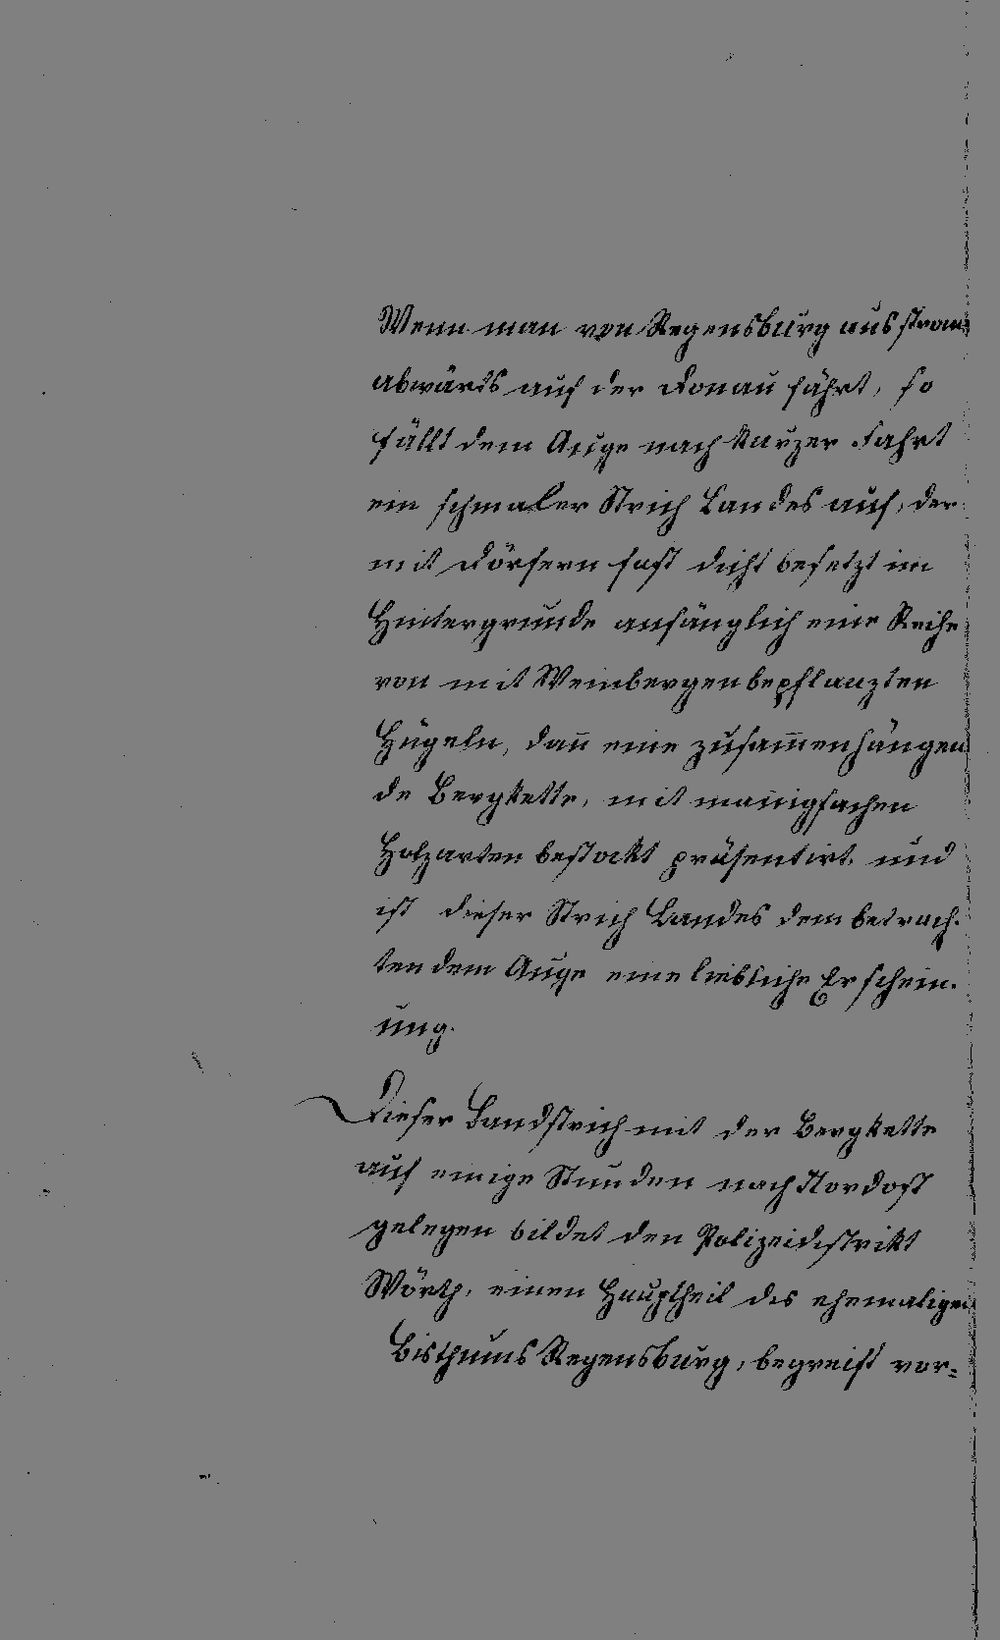 Wenn man von Regensburg aus strom¬
abwärts auf der Donau fährt, so
fällt dem Auge nach kurzer Fahrt
ein schmaler Strich Landes auf, der
mit Dörfern fast dicht besetzt im
Hintergrunde anfänglich eine Reihe
von mit Weinbergen bepflanzten
Hügeln, dañ eine zusam̄enhängen
de Bergkette, mit mañigfachen
Holzarten bestockt präsentirt, und
ist dieser Strich Landes dem betrach-
tendem Auge eine liebliche Erschein-
ung.
Dieser Landstrich mit der Bergkette
auf einige Stunden nach Nordost
gelegen bildet den Polizeidistrikt
Wörth, einen Haupttheil des ehemaligen
Bisthums Regensburg, begreift vor=